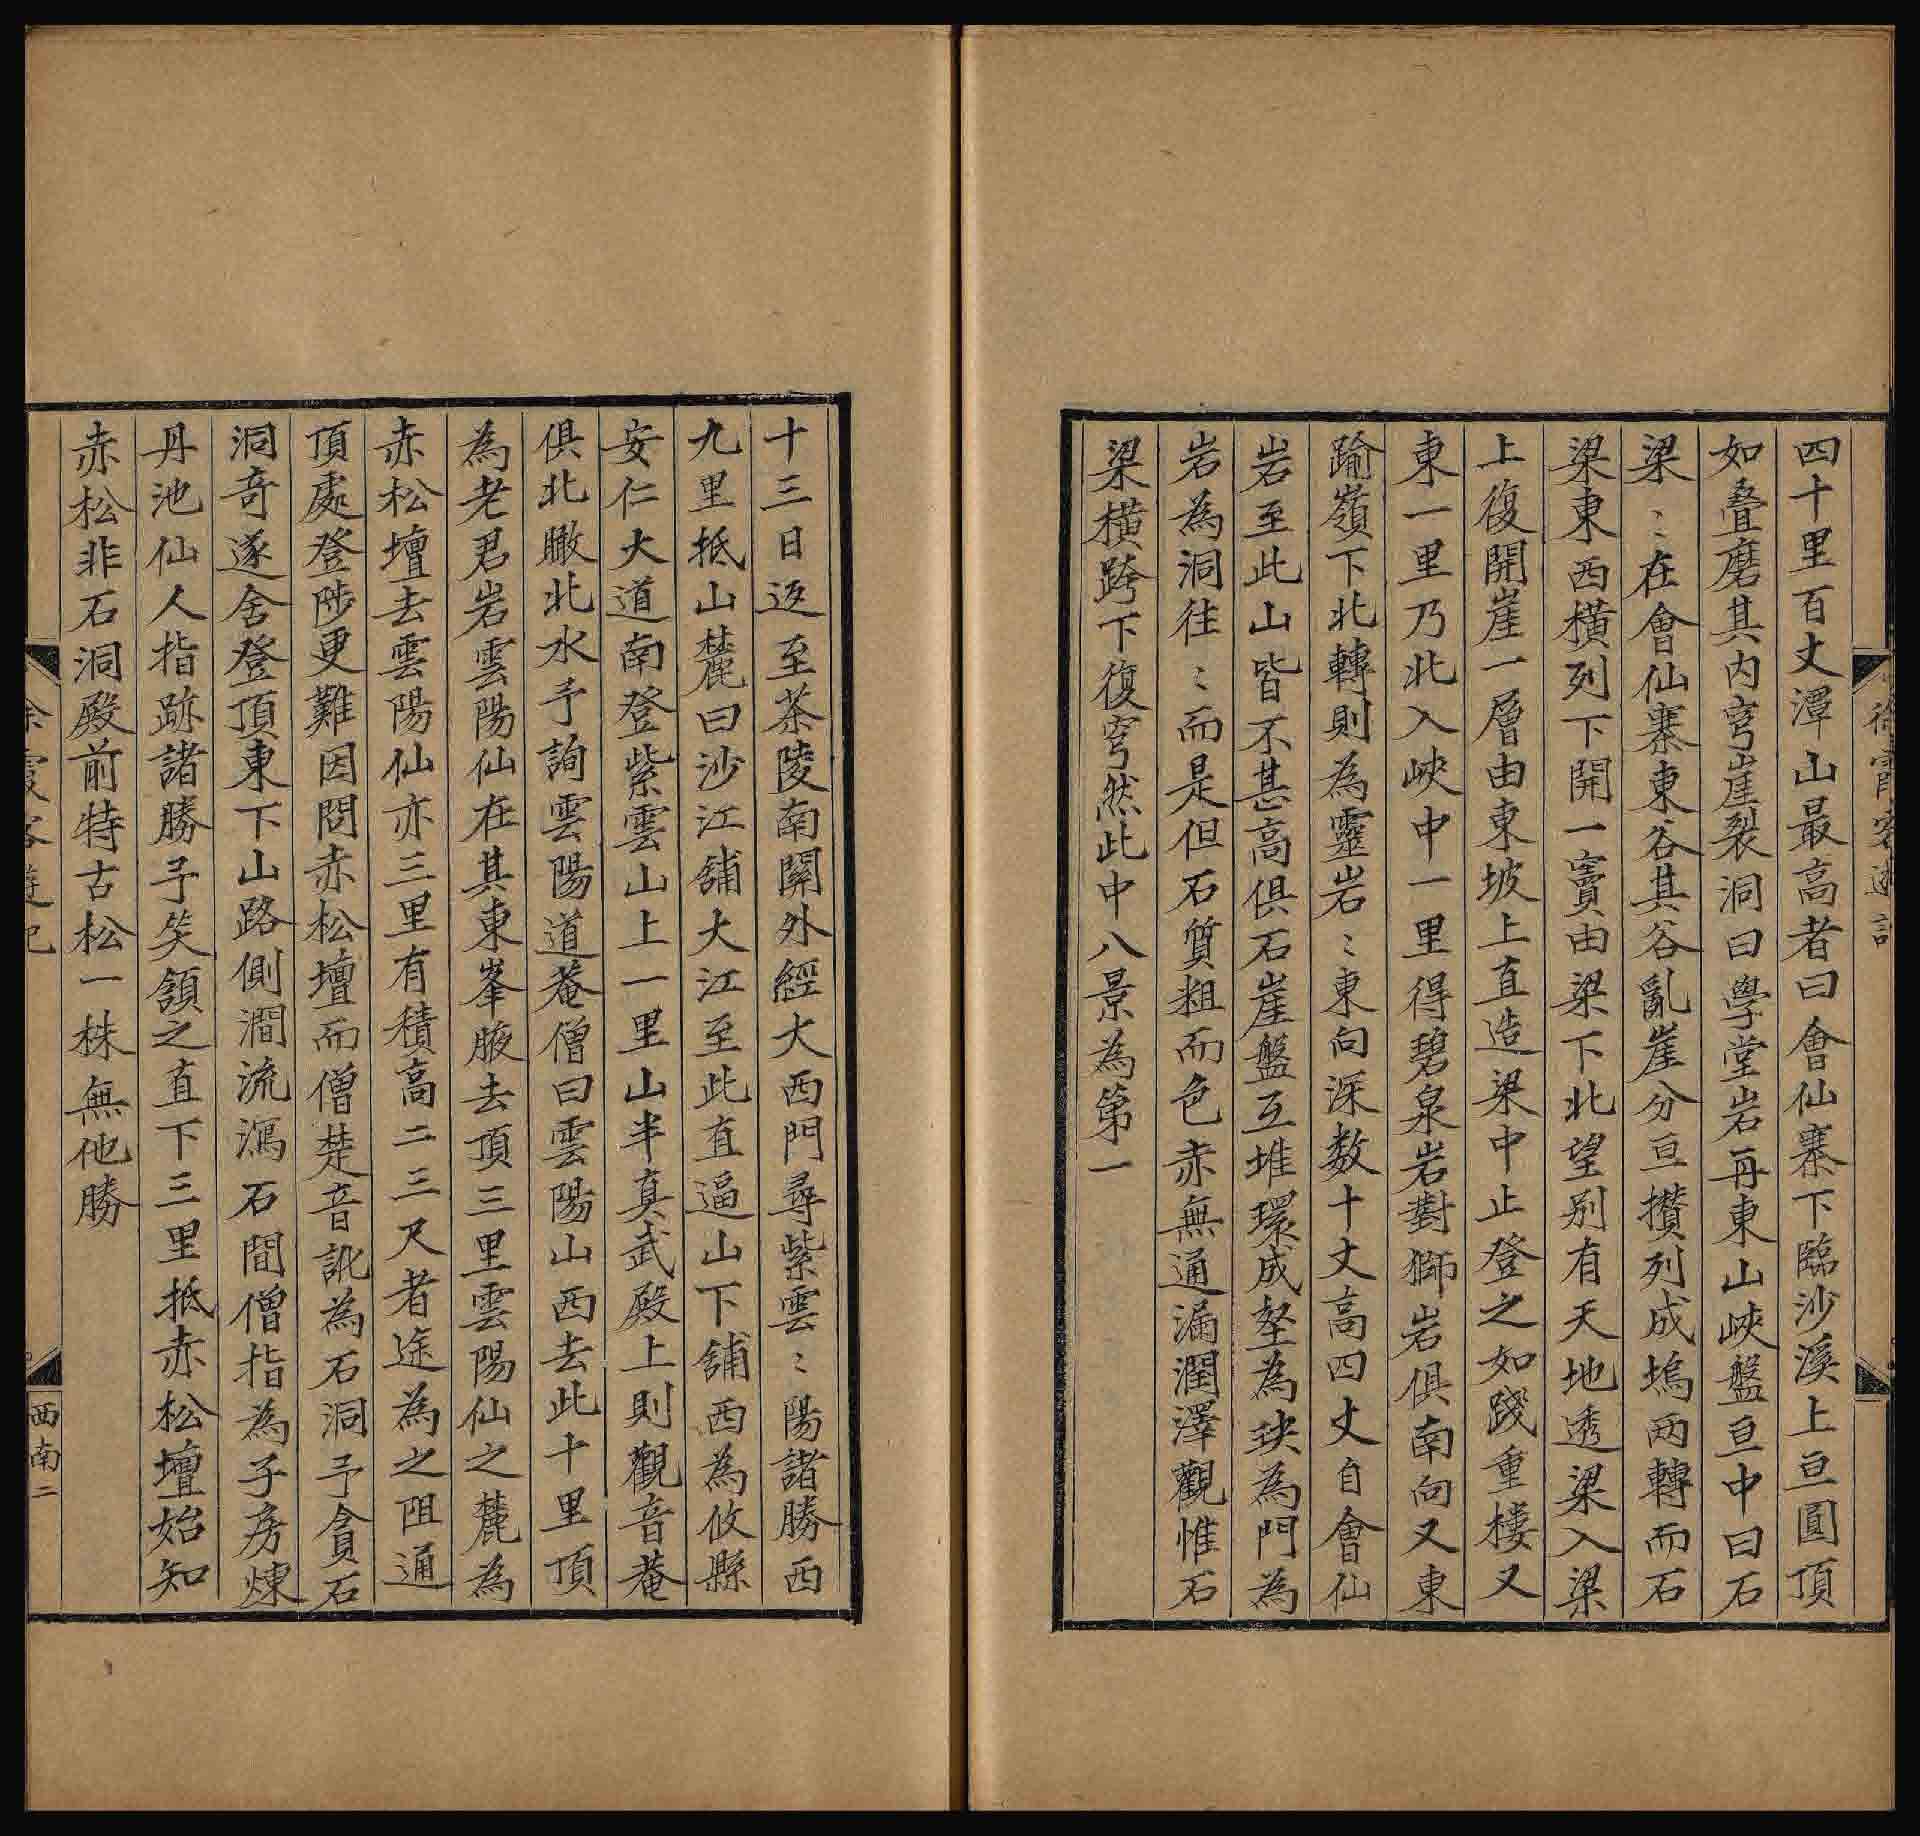 徐霞客遊記
四十里百丈潭山最高者曰會仙寨下臨沙溪上亘圓頂
如叠磨其内穹崖裂洞曰學堂岩再東山峽盤亘中曰石
梁〻在會仙寨東谷其谷亂崖分亘攢列成塢兩轉而石
梁東西橫列下開一竇由梁下北望别有天地透梁入梁
上復開崖一層由東坡上直造梁中止登之如踐重樓又
東一里乃北入峽中一里得碧泉岩對獅岩俱南向又東
踰嶺下北轉則為靈岩〻東向深数十丈高四丈自會仙
岩至此山皆不甚高俱石崖盤互堆環成壑為玦為門為
岩為洞往〻而是但石質粗而色赤無通漏潤澤觀惟石
梁橫跨下復穹然此中八景為第一
十三日返至茶陵南關外經大西門尋紫雲〻陽諸勝西
九里抵山麓曰沙江舖大江至此直逼山下舖西為攸縣
安仁大道南登紫雲山上一里山半真武殿上則觀音菴
俱北瞰北水予詢雲陽道菴僧曰雲陽山西去此十里頂
為老君岩雲陽仙在其東峯腋去頂三里雲陽仙之麓為
赤松壇去雲陽仙亦三里有積高二三尺者途為之阻通
頂處登陟更難因問赤松壇而僧楚音訛為石洞予貪石
洞奇遂舍登頂東下山路側澗流瀉石間僧指為子房煉
丹池仙人指跡諸勝予笑頷之直下三里抵赤松壇始知
赤松非石洞殿前特古松一株無他勝
徐霞客遊記
西南二